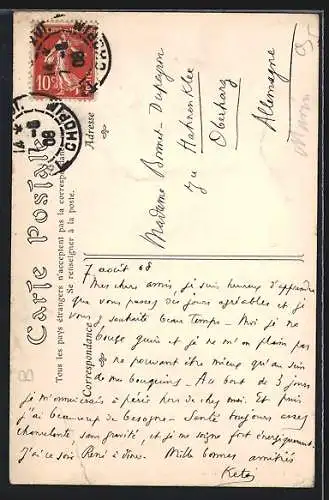 Carte Postale
Tous les pays étrangers n'acceptent pas la correspondance
Se renseigner à la poste.
Correspondance
Adresse
10c
Madame Bonnet-Dupeyron
zu Hahnenklee
Oberharz
Allemagne
7 août 08
Mes chers amis, je suis heureux d'apprendre
que vous passez des jours agréables et je
vous souhaite beau temps - Moi je ne
bouge guère et je ne m'en plains pas
ne pouvant être mieux qu'au sein
de mes bouquins - Au bout de 3 jours
je m'ennuierais à périr hors de chez moi. Et puis
j'ai beaucoup de besogne - Santé toujours assez
chancelante, sans gravité, et je me soigne fort énergiquement.
J'ai ce soir René à dîner - Mille bonnes amitiés